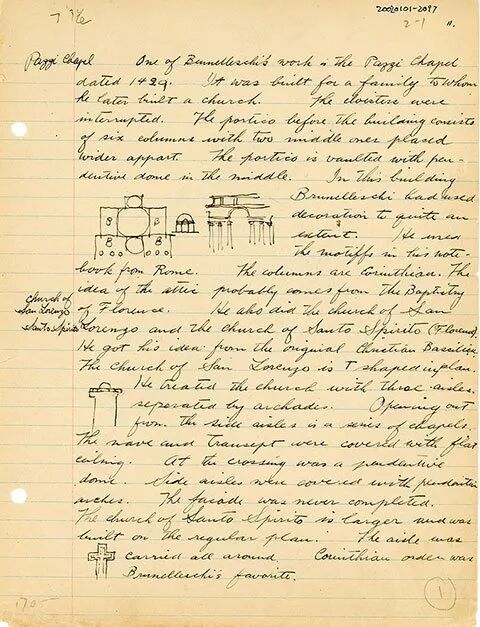 7 3/6
20020101-2097
2-1 11.
Pazzi Chapel
One of Brunelleschi's work is the Pazzi Chapel
dated 1429. It was built for a family to whom
he later built a church. The cloisters were
interrupted. The portico before the building consists
of six columns with two middle ones placed
wider appart. The portico is vaulted with pen-
dentive dome in the middle. In this building
Brunelleschi had used
decoration to quite an
extent. He used
the motiffs in his note-
book from Rome. The columns are Corinthian. The
idea of the attic probably comes from the Baptistry
of Florence. He also did the church of San
church of
San Lorenzo
Santo Spirito
Lorenzo and the church of Santo Spirito (Florence).
He got his idea from the original Christian Basilica.
The church of San Lorenzo is T shaped in plan.
He treated the church with three aisles
seperated by archades. Opening out
from the side aisles is a series of chapels.
The nave and transept were covered with flat
ceiling. At the crossing was a pendentive
dome. Side aisles were covered with pendentive
arches. The facade was never completed.
The church of Santo Spirito is larger and was
built on the regular plan. The aisle was
carried all around Corinthian order was
Brunelleschi's favorite.
B
B
B
B
1
170-